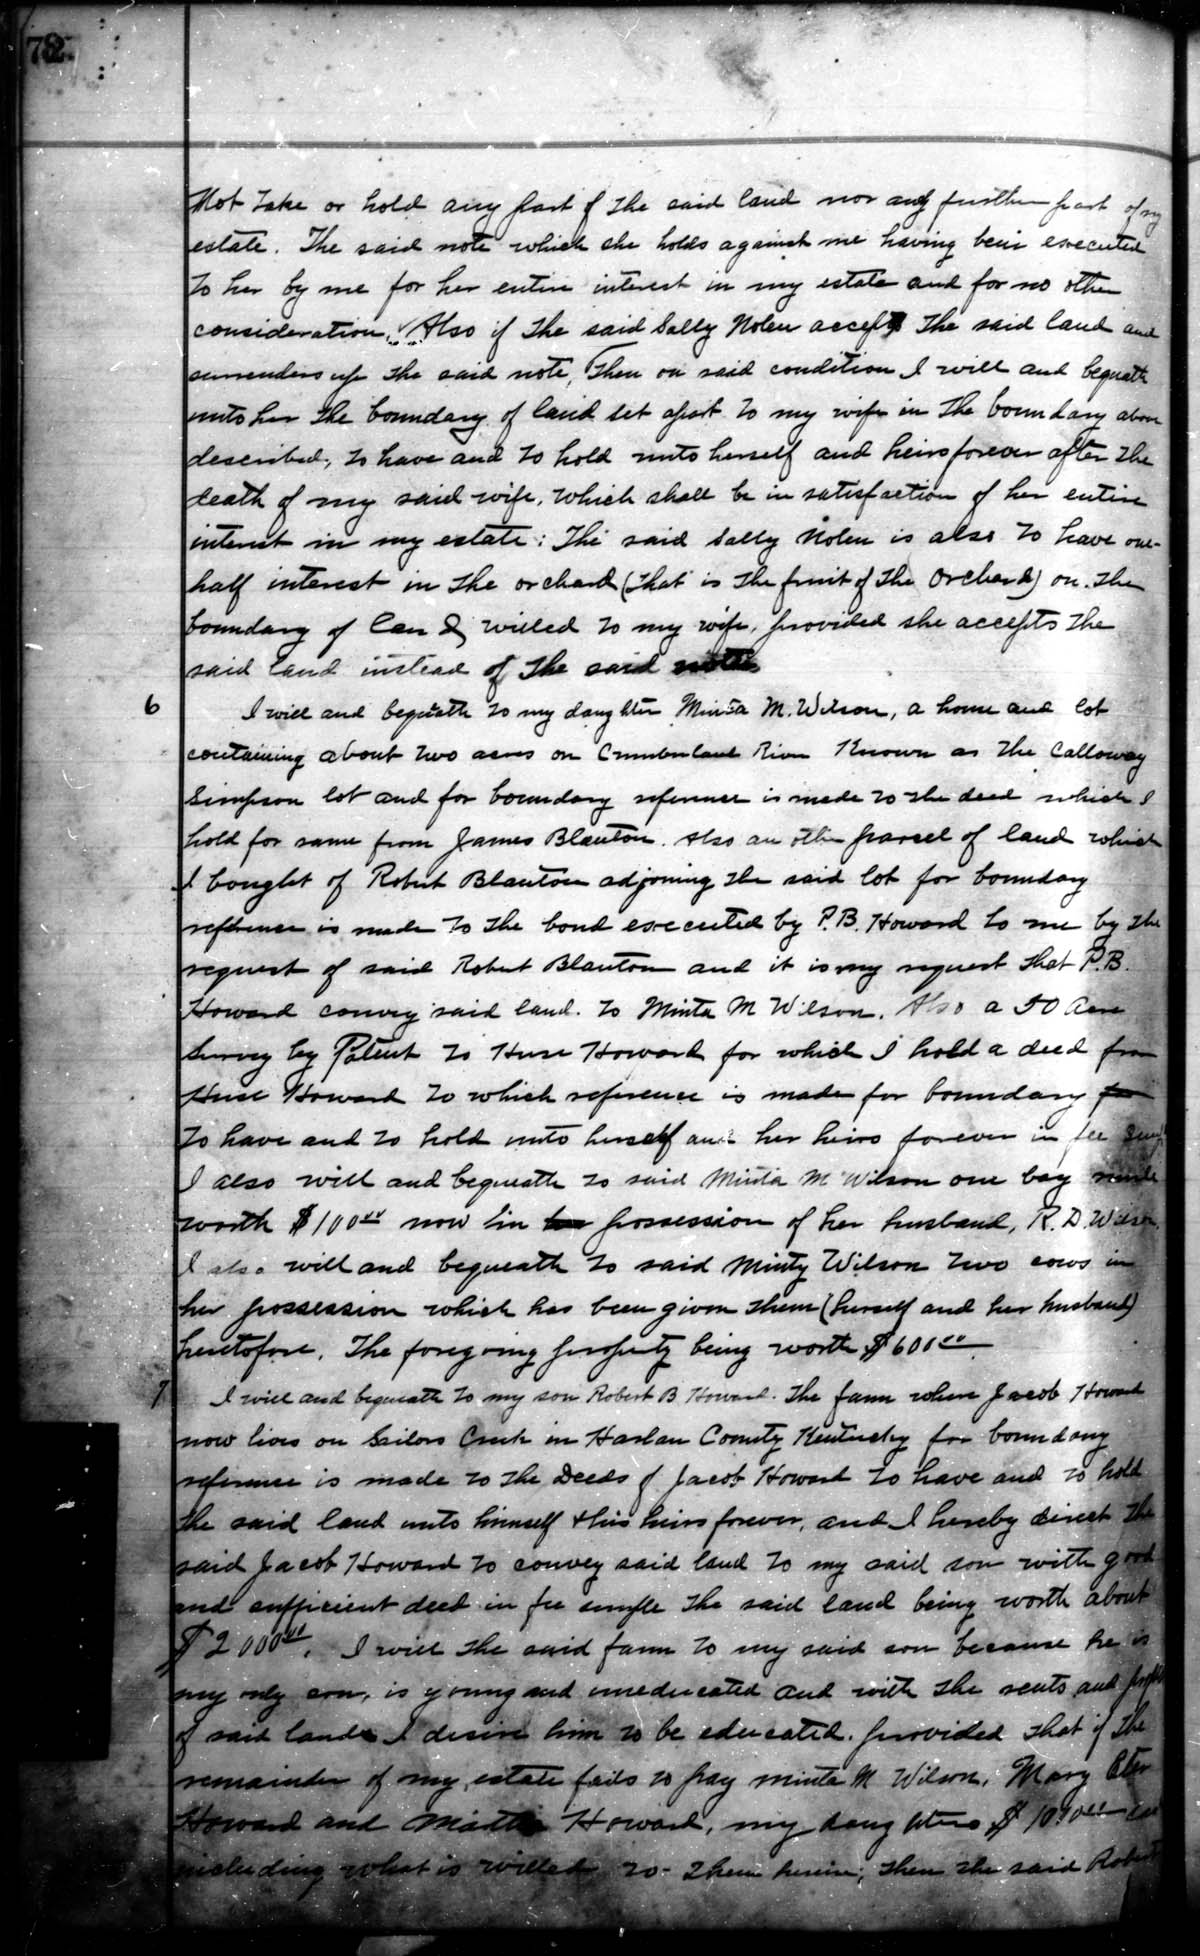 72
Not take or hold any part of the said land nor any further part of my
estate. The said note which she holds against me having been executed
to her by me for her entire interest in my estate and for no other
consideration. Also if the said Sally Nolen accepts the said land and
surrenders up the said note, Then on said condition I will and bequath
unto her the boundary of land set apart to my wife in the boundary above
described, to have and to hold unto herself and heirs forever after the
death of my said wife, which shall be in satisfaction of her entire
interest in my estate: The said Sally Nolen is also to have one-
half interest in the orchard (that is the fruit of the orchard) on the
boundary of land willed to my wife, provided she accepts the
said land instead of the said note
6 I will and bequath to my daughter Minta M. Wilson, a home and lot
containing about two acres on Cumberland River Known as the Calloway
Simpson lot and for boundary reference is made to the deed which I
hold for same from James Blanton. Also an other parcel of land which
I bought of Robert Blanton adjoining the said lot for boundary
reference is made to the bond executed by P.B. Howard to me by the
request of said Robert Blanton and it is my request that P.B.
Howard convey said land to Minta M Wilson. Also a 50 Acre
Survey by Patent to Huse Howard for which I hold a deed from
Huse Howard to which reference is made for boundary
to have and to hold unto herself and her heirs forever in fee
I also will and bequeath to said Minta M Wilson one bay mule
worth $100.00 now in possession of her husband, R. D. Wilson.
I also will and bequeath to said Minty Wilson two cows in
her possession which has been given them (herself and her husband)
heretofore. The foregoing property being worth $600.00
7 I will and bequeath to my son Robert B Howard. The farm where Jacob Howard
now lives on Sailors Creek in Harlan County Kentucky for boundary
reference is made to the Deeds of Jacob Howard to have and to hold
the said land unto himself & his heirs forever, and I hereby direct the
said Jacob Howard to convey said land to my said son with good
and sufficient deed in fee simple the said land being worth about
$2000.00. I will the said farm to my said son because he is
my only son, is young and uneducated and with the rents and profits
of said lands I desire him to be educated. provided that if the
remainder of my estate fails to pay Minta M Wilson, Mary
Howard and Howard, my daughters
including what is willed to them herein; then the said Robert